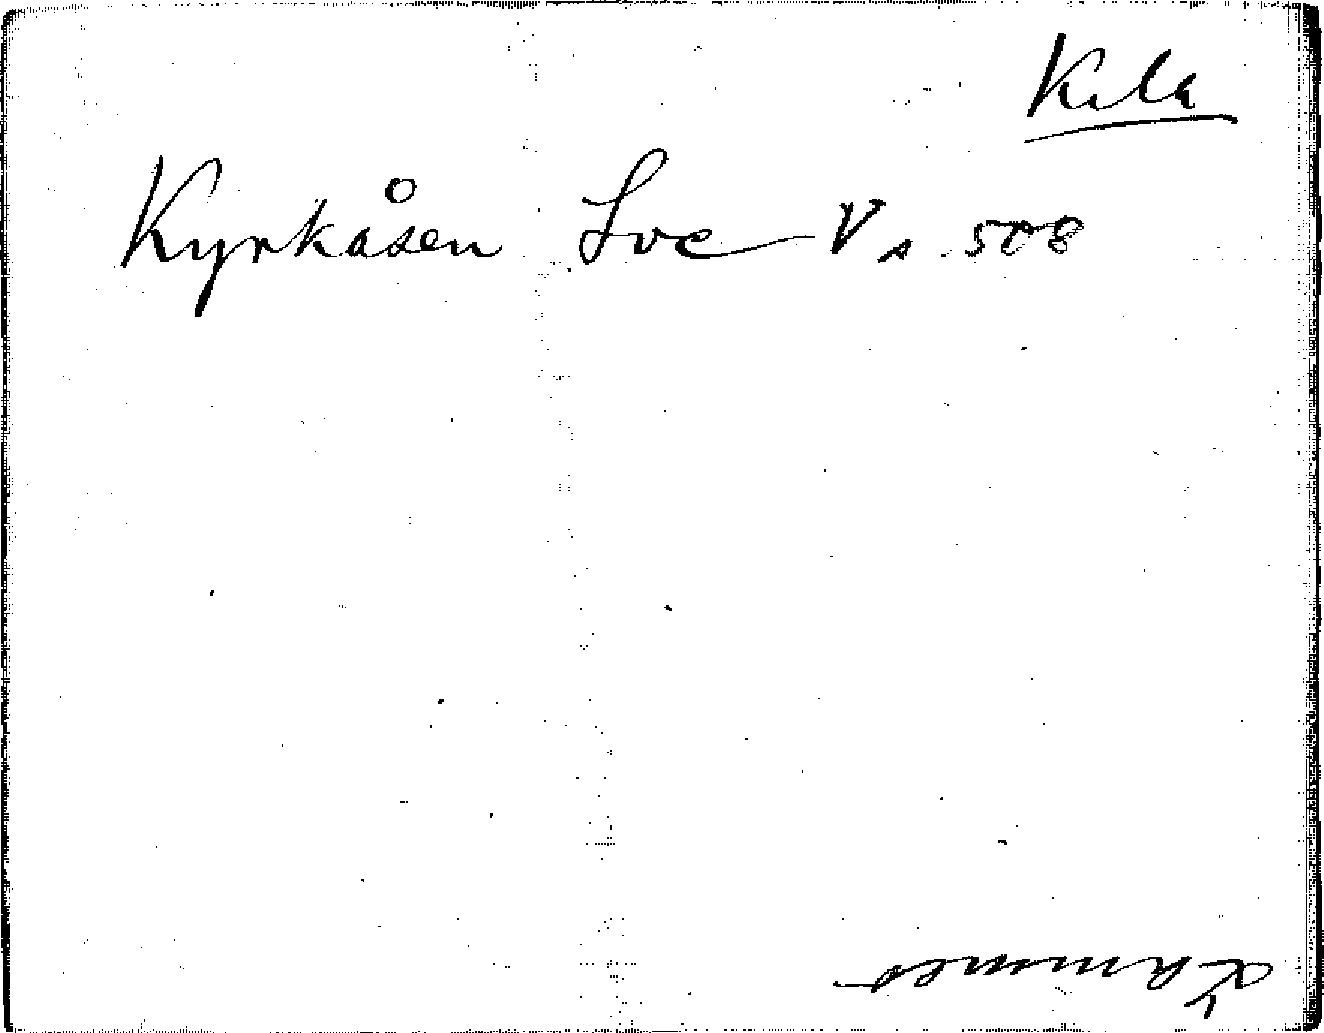 Kila
Kyrkåsen Sve Vs 508